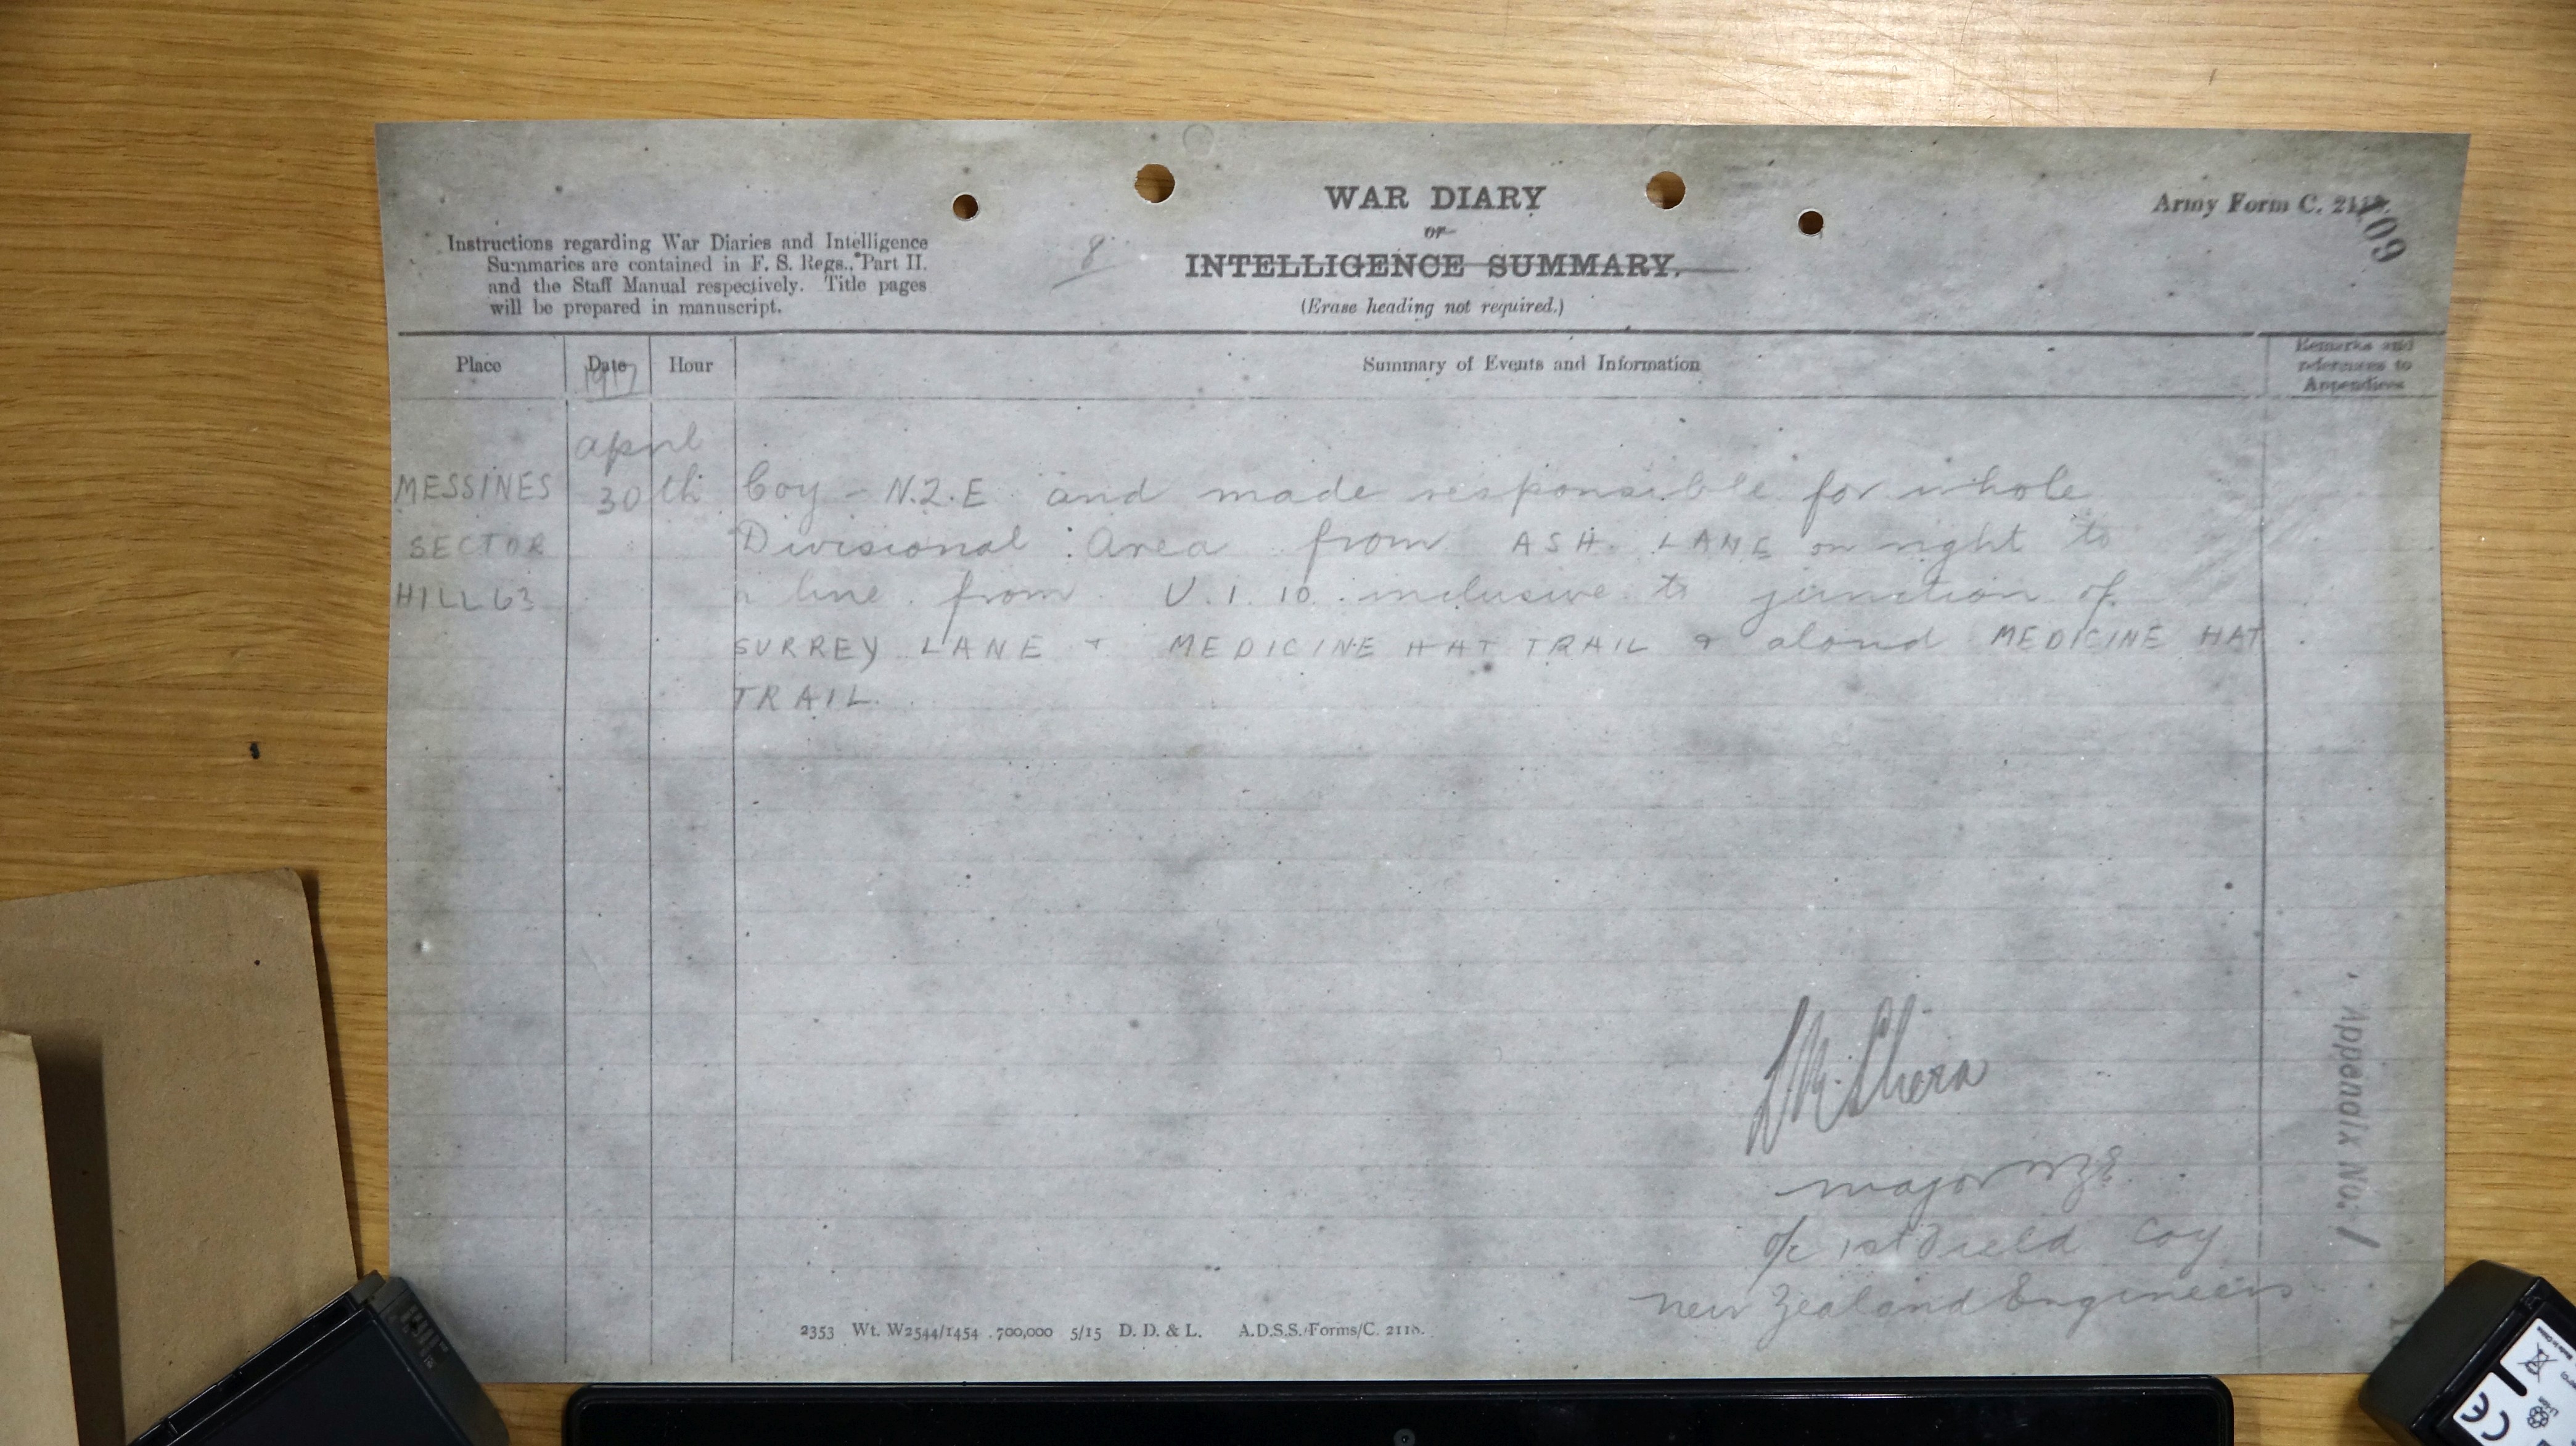 WAR DIARY
or
INTELLIGENCE SUMMARY.
(Erase heading not required.)
Army Form C. 2118.
109
8
Instructions regarding War Diaries and Intelligence
Summaries are contained in F. S. Regs., Part II.
and the Staff Manual respectively. Title pages
will be prepared in manuscript.
Place
Date
Hour
Summary of Events and Information
Remarks and
references to
Appendices
1917
April
MESSINES 30th Coy - N.Z.E. and made responsible for whole
SECTOR Divisional Area from ASH LANE on right to
HILL 63 line from U.1.10. inclusive to junction of
SURREY LANE & MEDICINE HAT TRAIL & alond MEDICINE HAT
TRAIL.
Appendix No. 1
Major NZE.
o/c 1st Field Coy
New Zealand Engineers
2353 Wt. W2544/1454 700,000 5/15 D. D. & L. A.D.S.S./Forms/C. 2118.
CE